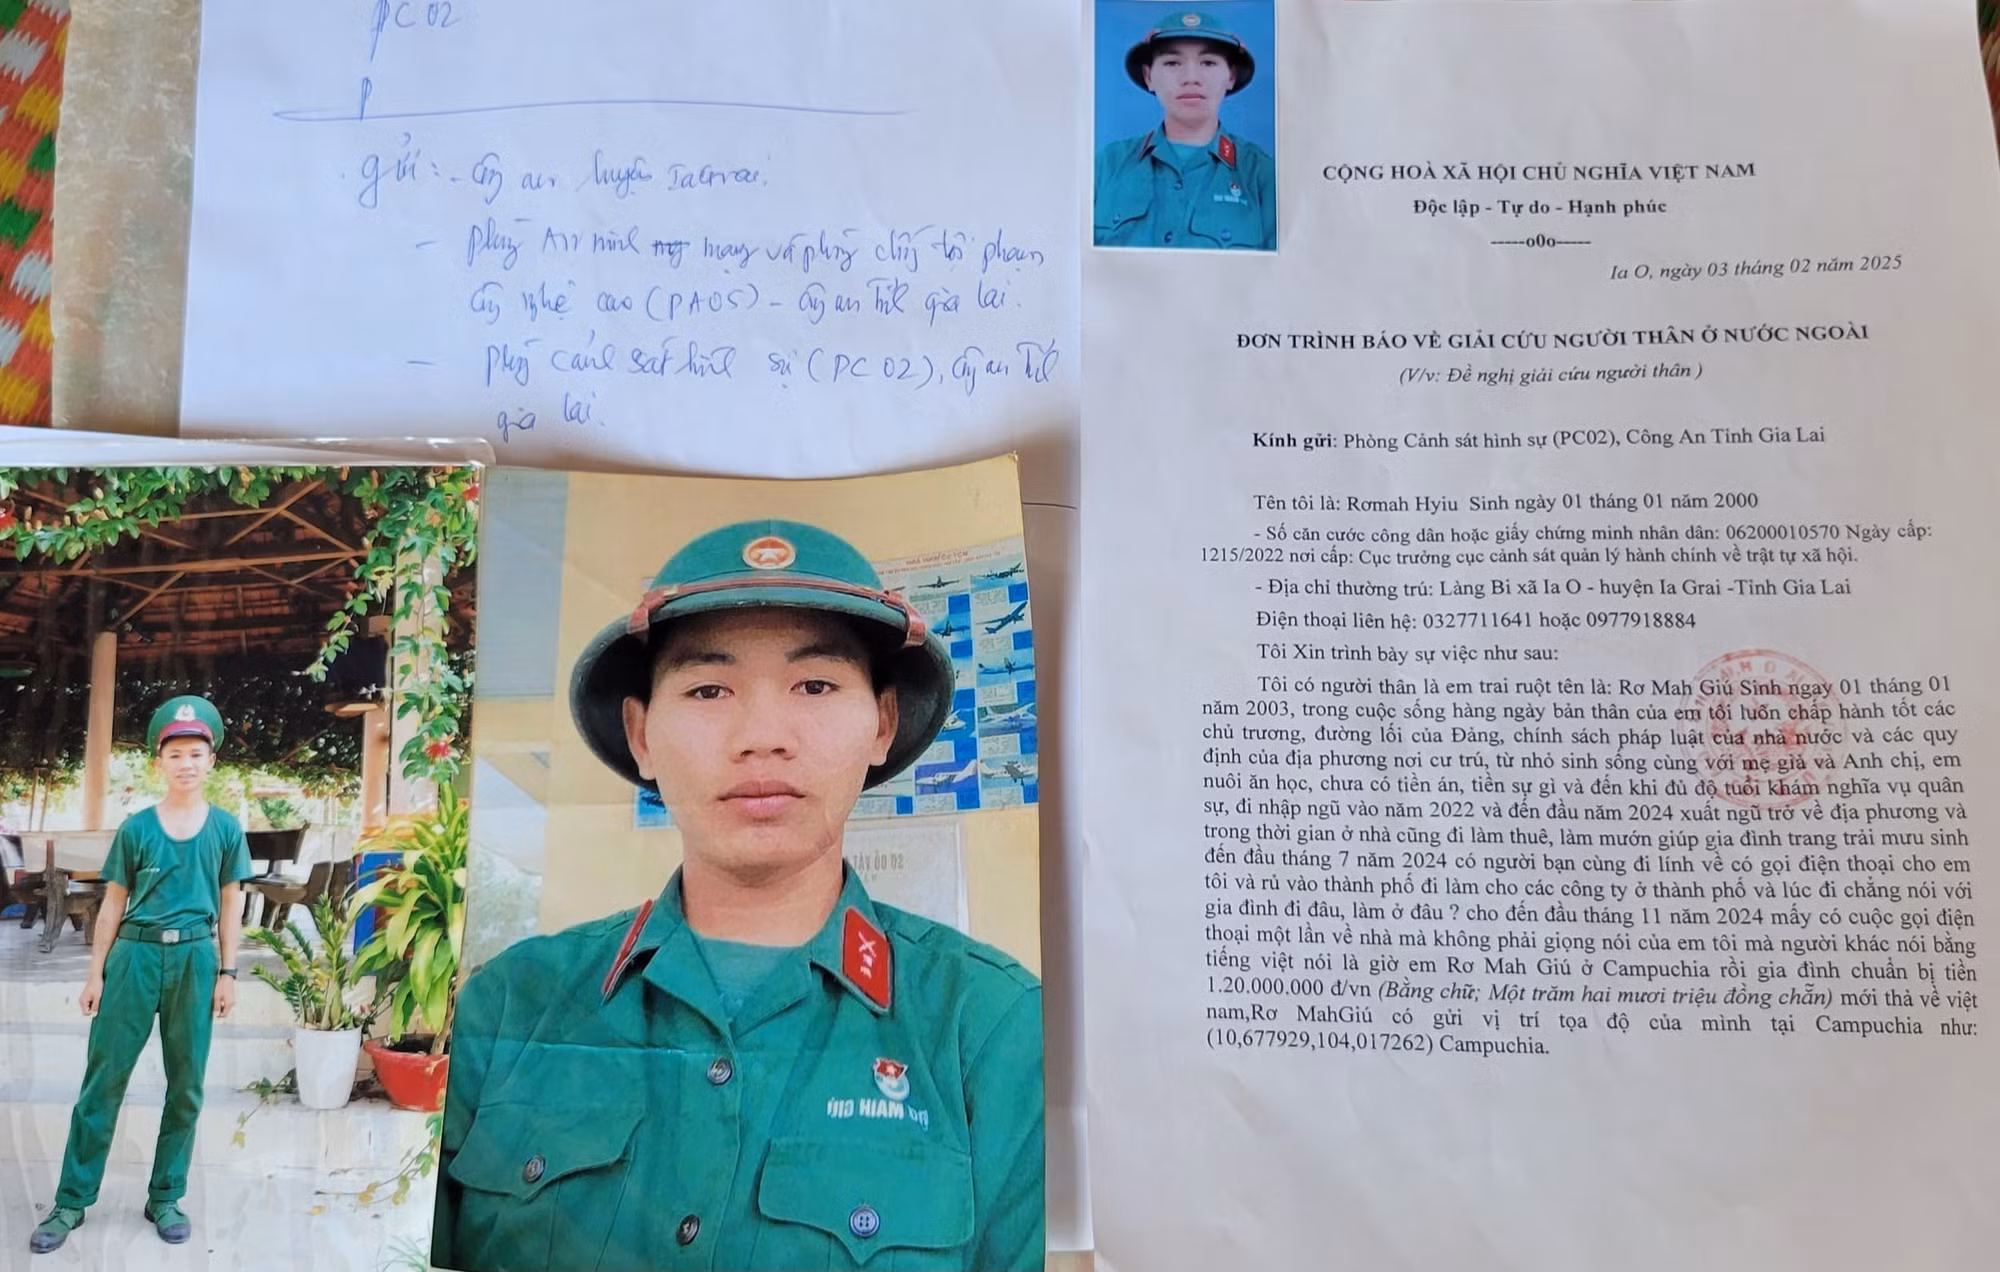 PC02
P
Gửi: - Công an huyện IaGrai.
- Phòng An ninh mạng và phòng chống tội phạm
Công nghệ cao (PA05) - Công an Tỉnh gia lai.
- Phòng Cảnh sát hình sự (PC02), Công an Tỉnh
gia lai.
CỘNG HOÀ XÃ HỘI CHỦ NGHĨA VIỆT NAM
Độc lập - Tự do - Hạnh phúc
-----o0o-----
Ia O, ngày 03 tháng 02 năm 2025
ĐƠN TRÌNH BÁO VỀ GIẢI CỨU NGƯỜI THÂN Ở NƯỚC NGOÀI
(V/v: Đề nghị giải cứu người thân )
Kính gửi: Phòng Cảnh sát hình sự (PC02), Công An Tỉnh Gia Lai
Tên tôi là: Rơmah Hyiu Sinh ngày 01 tháng 01 năm 2000
- Số căn cước công dân hoặc giấy chứng minh nhân dân: 06200010570 Ngày cấp:
1215/2022 nơi cấp: Cục trưởng cục cảnh sát quản lý hành chính về trật tự xã hội.
- Địa chỉ thường trú: Làng Bi xã Ia O - huyện Ia Grai -Tỉnh Gia Lai
Điện thoại liên hệ: 0327711641 hoặc 0977918884
Tôi Xin trình bày sự việc như sau:
Tôi có người thân là em trai ruột tên là: Rơ Mah Giú Sinh ngay 01 tháng 01
năm 2003, trong cuộc sống hàng ngày bản thân của em tôi luôn chấp hành tốt các
chủ trương, đường lối của Đảng, chính sách pháp luật của nhà nước và các quy
định của địa phương nơi cư trú, từ nhỏ sinh sống cùng với mẹ già và Anh chị, em
nuôi ăn học, chưa có tiền án, tiền sự gì và đến khi đủ độ tuổi khám nghĩa vụ quân
sự, đi nhập ngũ vào năm 2022 và đến đầu năm 2024 xuất ngũ trở về địa phương và
trong thời gian ở nhà cũng đi làm thuê, làm mướn giúp gia đình trang trải mưu sinh
đến đầu tháng 7 năm 2024 có người bạn cùng đi lính về có gọi điện thoại cho em
tôi và rủ vào thành phố đi làm cho các công ty ở thành phố và lúc đi chẳng nói với
gia đình đi đâu, làm ở đâu ? cho đến đầu tháng 11 năm 2024 mấy có cuộc gọi điện
thoại một lần về nhà mà không phải giọng nói của em tôi mà người khác nói bằng
tiếng việt nói là giờ em Rơ Mah Giú ở Campuchia rồi gia đình chuẩn bị tiền
1.20.000.000 đ/vn (Bằng chữ; Một trăm hai mươi triệu đồng chẵn) mới thả về việt
nam,Rơ MahGiú có gửi vị trí tọa độ của mình tại Campuchia như:
(10,677929,104,017262) Campuchia.